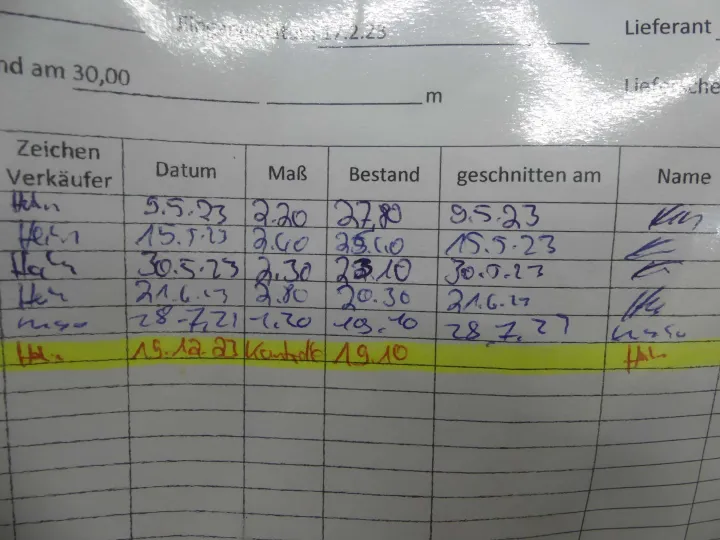 17.2.23 Lieferant
nd am 30,00 m
Zeichen Verkäufer Datum Maß Bestand geschnitten am Name
Hahn 9.5.23 2.20 27,80 9.5.23
Hahn 15.5.23 2.40 25.40 15.5.23
Hahn 30.5.23 2.30 23.10 30.5.23
Hah 21.6.23 2.80 20.30 21.6.23
28.7.23 1.20 19.10 28.7.23
Hahn 15.12.23 Kontrolle 19.10 Hahn